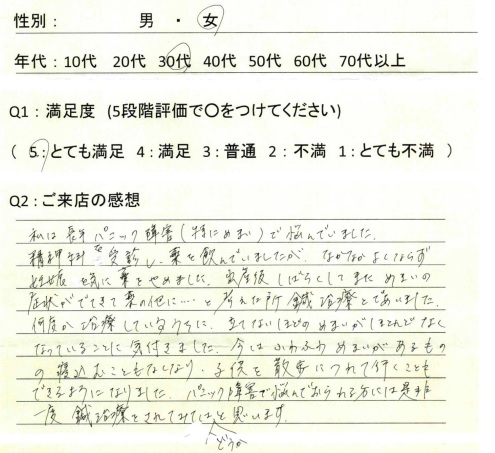 性別： 男 ・ 女
年代：10代 20代 30代 40代 50代 60代 70代以上
Q1：満足度 (5段階評価で〇をつけてください)
( 5：とても満足 4：満足 3：普通 2：不満 1：とても不満 )
Q2：ご来店の感想
私は長年パニック障害(特にめまい)で悩んでいました。
精神科を受診し、薬を飲んでいましたが、なかなかよくならず
妊娠を気に薬をやめました。出産後しばらくしてまためまいの
症状がでてきて薬の他に……と考えた所鍼治療とであいました。
何度か治療しているうちに、立てないほどのめまいがほとんどなく
なっていることに気付きました。今はふわふわめまいがあるもの
の寝込むこともなくなり、子供を散歩につれて行くことも
できるようになりました。パニック障害で悩んでおられる方には是非
一度鍼治療をされてみてはと思います。
どうか